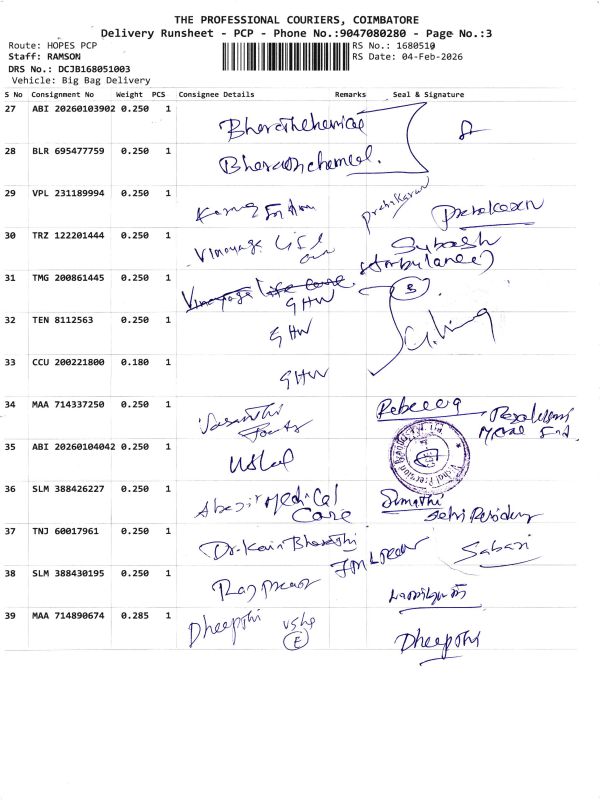 THE PROFESSIONAL COURIERS, COIMBATORE
Delivery Runsheet - PCP - Phone No.:9047080280 - Page No.:3
Route: HOPES PCP RS No.: 1680510
Staff: RAMSON RS Date: 04-Feb-2026
DRS No.: DCJB168051003
Vehicle: Big Bag Delivery
S No Consignment No Weight PCS Consignee Details Remarks Seal & Signature
27 ABI 20260103902 0.250 1
28 BLR 695477759 0.250 1
29 VPL 231189994 0.250 1 prabakaran Prabakaran
30 TRZ 122201444 0.250 1 Vinayaga Subash
(Ambulance)
31 TMG 200861445 0.250 1 Vinayaga life care
GHW
32 TEN 8112563 0.250 1 GHW
33 CCU 200221800 0.180 1 GHW
34 MAA 714337250 0.250 1 Vasanthi Rebecca
35 ABI 20260104042 0.250 1
36 SLM 388426227 0.250 1 Medical
Care
37 TNJ 60017961 0.250 1 Dr. Bharathi Sabari
38 SLM 388430195 0.250 1
39 MAA 714890674 0.285 1 Dheepthi Dheepthi